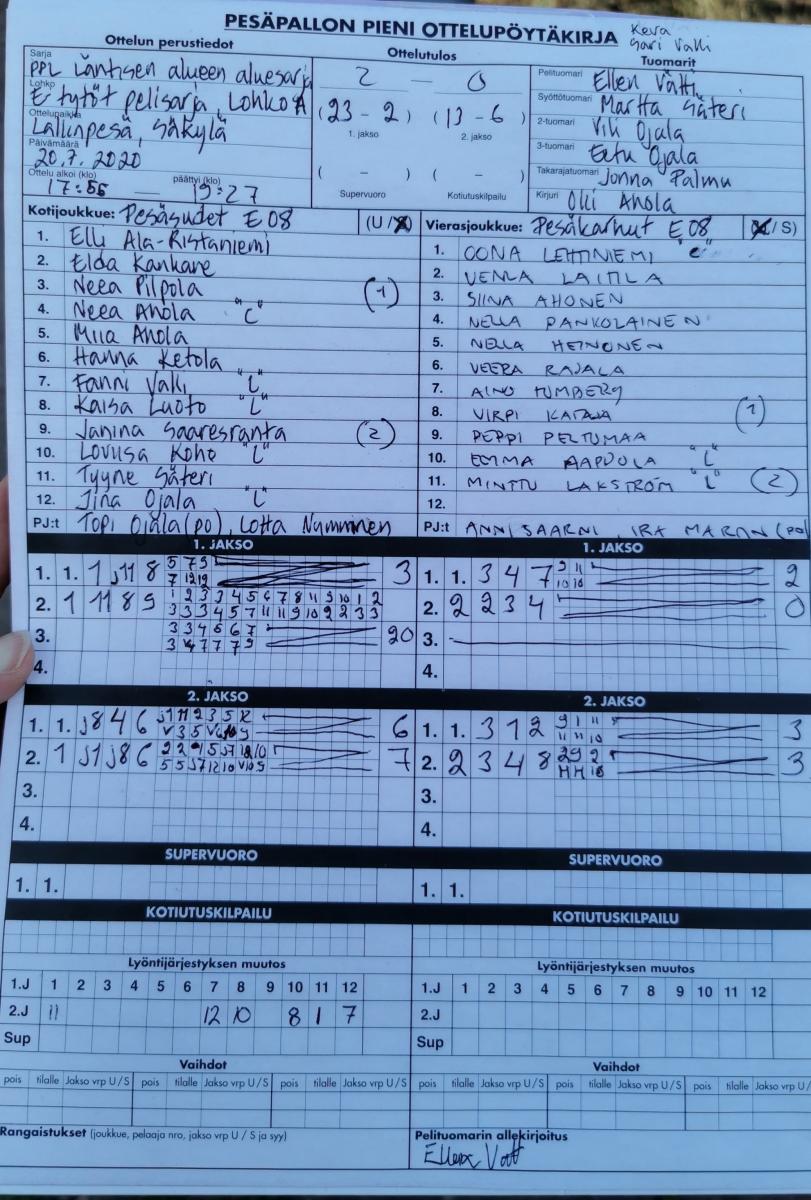 PESÄPALLON PIENI OTTELUPÖYTÄKIRJA
Kera
Sari Valli
Ottelun perustiedot
Ottelutulos
Tuomarit
Sarja
PPL Läntisen alueen aluesarja
Lohko
E tytöt pelisarja, Lohko A
Ottelupaikka
Lallinpesä, Säkylä
Päivämäärä
20.7.2020
Ottelu alkoi (klo) päättyi (klo)
17:56 — 19:27
2 — 0
(23 - 2) (13 - 6)
1. jakso 2. jakso
( - ) ( - )
Supervuoro Kotiutuskilpailu
Pelituomari Ellen Vätti
Syöttötuomari Martta Säteri
2-tuomari Vili Ojala
3-tuomari Eetu Ojala
Takarajatuomari Jonna Palmu
Kirjuri Olli Anola
Kotijoukkue: Pesäsudet E08 (U/S)
1. Elli Ala-Ristaniemi
2. Elda Kankare
3. Neea Pilpola (1)
4. Neea Anola "C"
5. Miia Anola
6. Hanna Ketola
7. Fanni Valli "L"
8. Kaisa Luoto "L"
9. Janina Saaresranta (2)
10. Loviisa Koho "L"
11. Tyyne Säteri
12. Jina Ojala "L"
PJ:t Topi Ojala (po), Lotta Numminen
Vierasjoukkue: Pesäkarhut E08 (U/S)
1. OONA LEHTINIEMI "C"
2. VENLA LAITILA
3. SIINA AHONEN
4. NELLA PANKOLAINEN
5. NELLA HEINONEN
6. VEERA RAJALA
7. AINO TUMBERG
8. VIRPI KATAJA (1)
9. PEPPI PELTOMAA
10. EMMA AAPUOLA "L"
11. MINTTU LAKSTRÖM "L" (2)
12.
PJ:t ANNI SAARNI, IRA MARTIN (po)
1. JAKSO
1. 1. 1 J11 8 3
2. 1 11 8 9
3. 20
4.
1. JAKSO
1. 1. 3 4 7 9 11 10 10 2
2. 2 2 3 4 0
3.
4.
2. JAKSO
1. 1. J8 4 6 6
2. 1 J1 J8 6 7
3.
4.
2. JAKSO
1. 1. 3 1 2 3
2. 2 3 4 8 3
3.
4.
SUPERVUORO
1. 1.
SUPERVUORO
1. 1.
KOTIUTUSKILPAILU
KOTIUTUSKILPAILU
Lyöntijärjestyksen muutos
1.J 1 2 3 4 5 6 7 8 9 10 11 12
2.J 11 12 10 8 1 7
Sup
Lyöntijärjestyksen muutos
1.J 1 2 3 4 5 6 7 8 9 10 11 12
2.J
Sup
Vaihdot
pois tilalle Jakso vrp U / S pois tilalle Jakso vrp U / S pois tilalle Jakso vrp U / S
Vaihdot
pois tilalle Jakso vrp U / S pois tilalle Jakso vrp U / S pois tilalle Jakso vrp U /
Rangaistukset (joukkue, pelaaja nro, jakso vrp U / S ja syy)
Pelituomarin allekirjoitus
Ellen Vätt